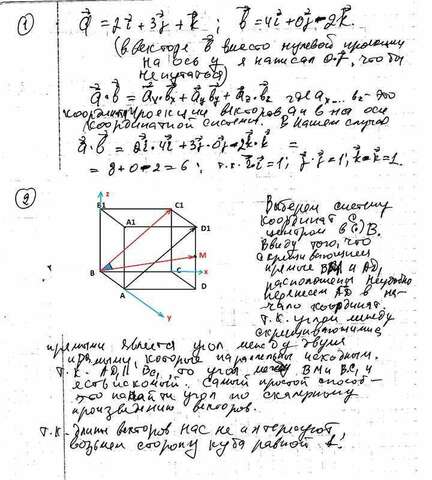 ① a⃗ = 2i⃗ + 3j⃗ + k⃗ ; b⃗ = 4i⃗ + 0j⃗ - 2k⃗.
(в векторе b⃗ вместо нулевой проекции
на ось y я написал 0·j⃗, чтобы
не путаться)
a⃗·b⃗ = aₓ·bₓ + aᵧbᵧ + a_z·b_z где aₓ...b_z - это
координаты проекции векторов a и b на оси
координатной системы. В нашем случае
a⃗·b⃗ = 2i⃗·4i⃗ + 3j⃗·0j⃗ - 2k⃗·k⃗ =
= 8+0-2=6; т.к. i⃗·i⃗=1; j⃗·j⃗=1; k⃗·k⃗=1.
②
z
B1
C1
A1
D1
M
B
C
x
A
D
y
Выберем систему
координат с
центром в (·) B.
Ввиду того, что
скрещивающиеся
прямые BM и AD₁
расположены неудобно
перенесем AD₁ в на-
чало координат.
Т.К. углом между
скрещивающимися
прямыми является угол между двумя
прямыми, которые параллельны исходным.
Т.К. AD₁ || BC₁, то угол между BM и BC₁ и
есть искомый. Самый простой способ-
это найти угол по скалярному
произведению векторов.
Т.К. длины векторов нас не интересуют,
возьмем сторону куба равной 1.